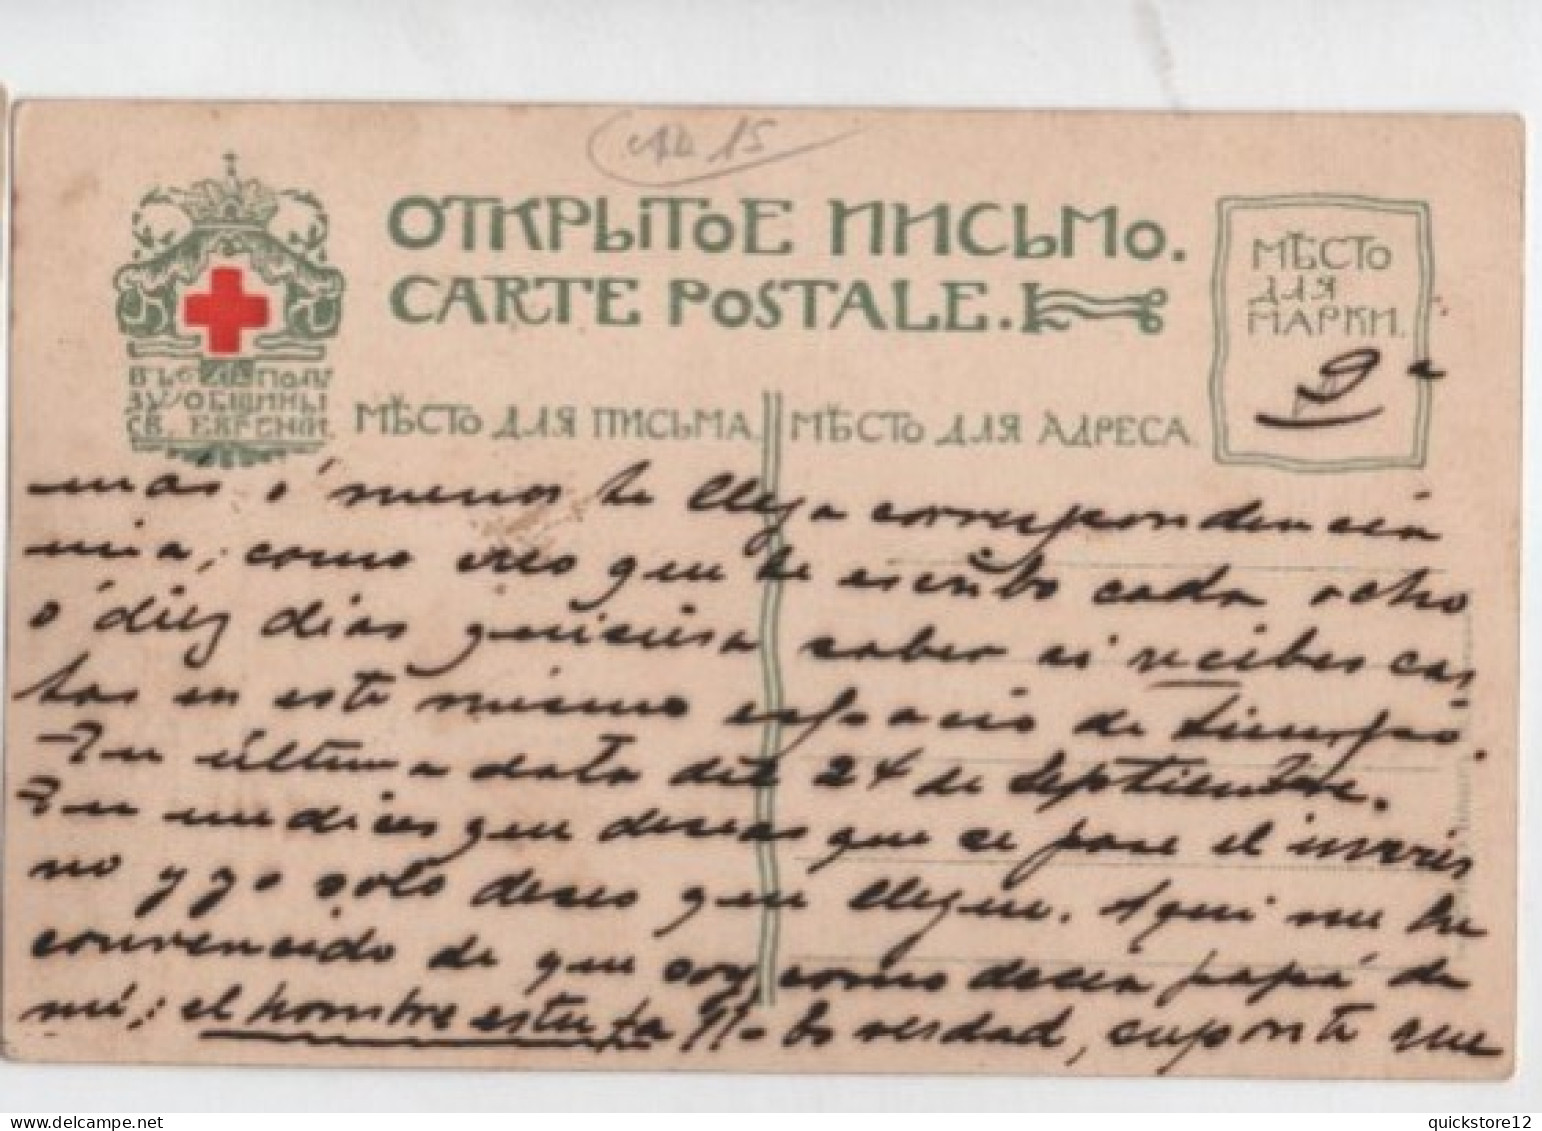 CAD 15
ОТКРЫТОЕ ПИСЬМО.
CARTE POSTALE.
МѢСТО
ДЛЯ
МАРКИ.
9ª
ВЪ ПОЛЬ
ЗУ ОБЩИНЫ
СВ. ЕВГЕНІИ.
МѢСТО ДЛЯ ПИСЬМА.
МѢСТО ДЛЯ АДРЕСА.
más ó menos te llega correspondencia
mia; como creo que te escribo cada ocho
ó diez dias quisiera saber si recibes car
tas en este mismo espacio de tiempo.
Tu última data del 24 de Septiembre.
Tu me dices que deseas que se pase el invier
no y yo solo deseo que llegue. Aqui me he
convencido de que soy como decía papá de
mí; el hombre estufa Es verdad, suponte que
quickstore12